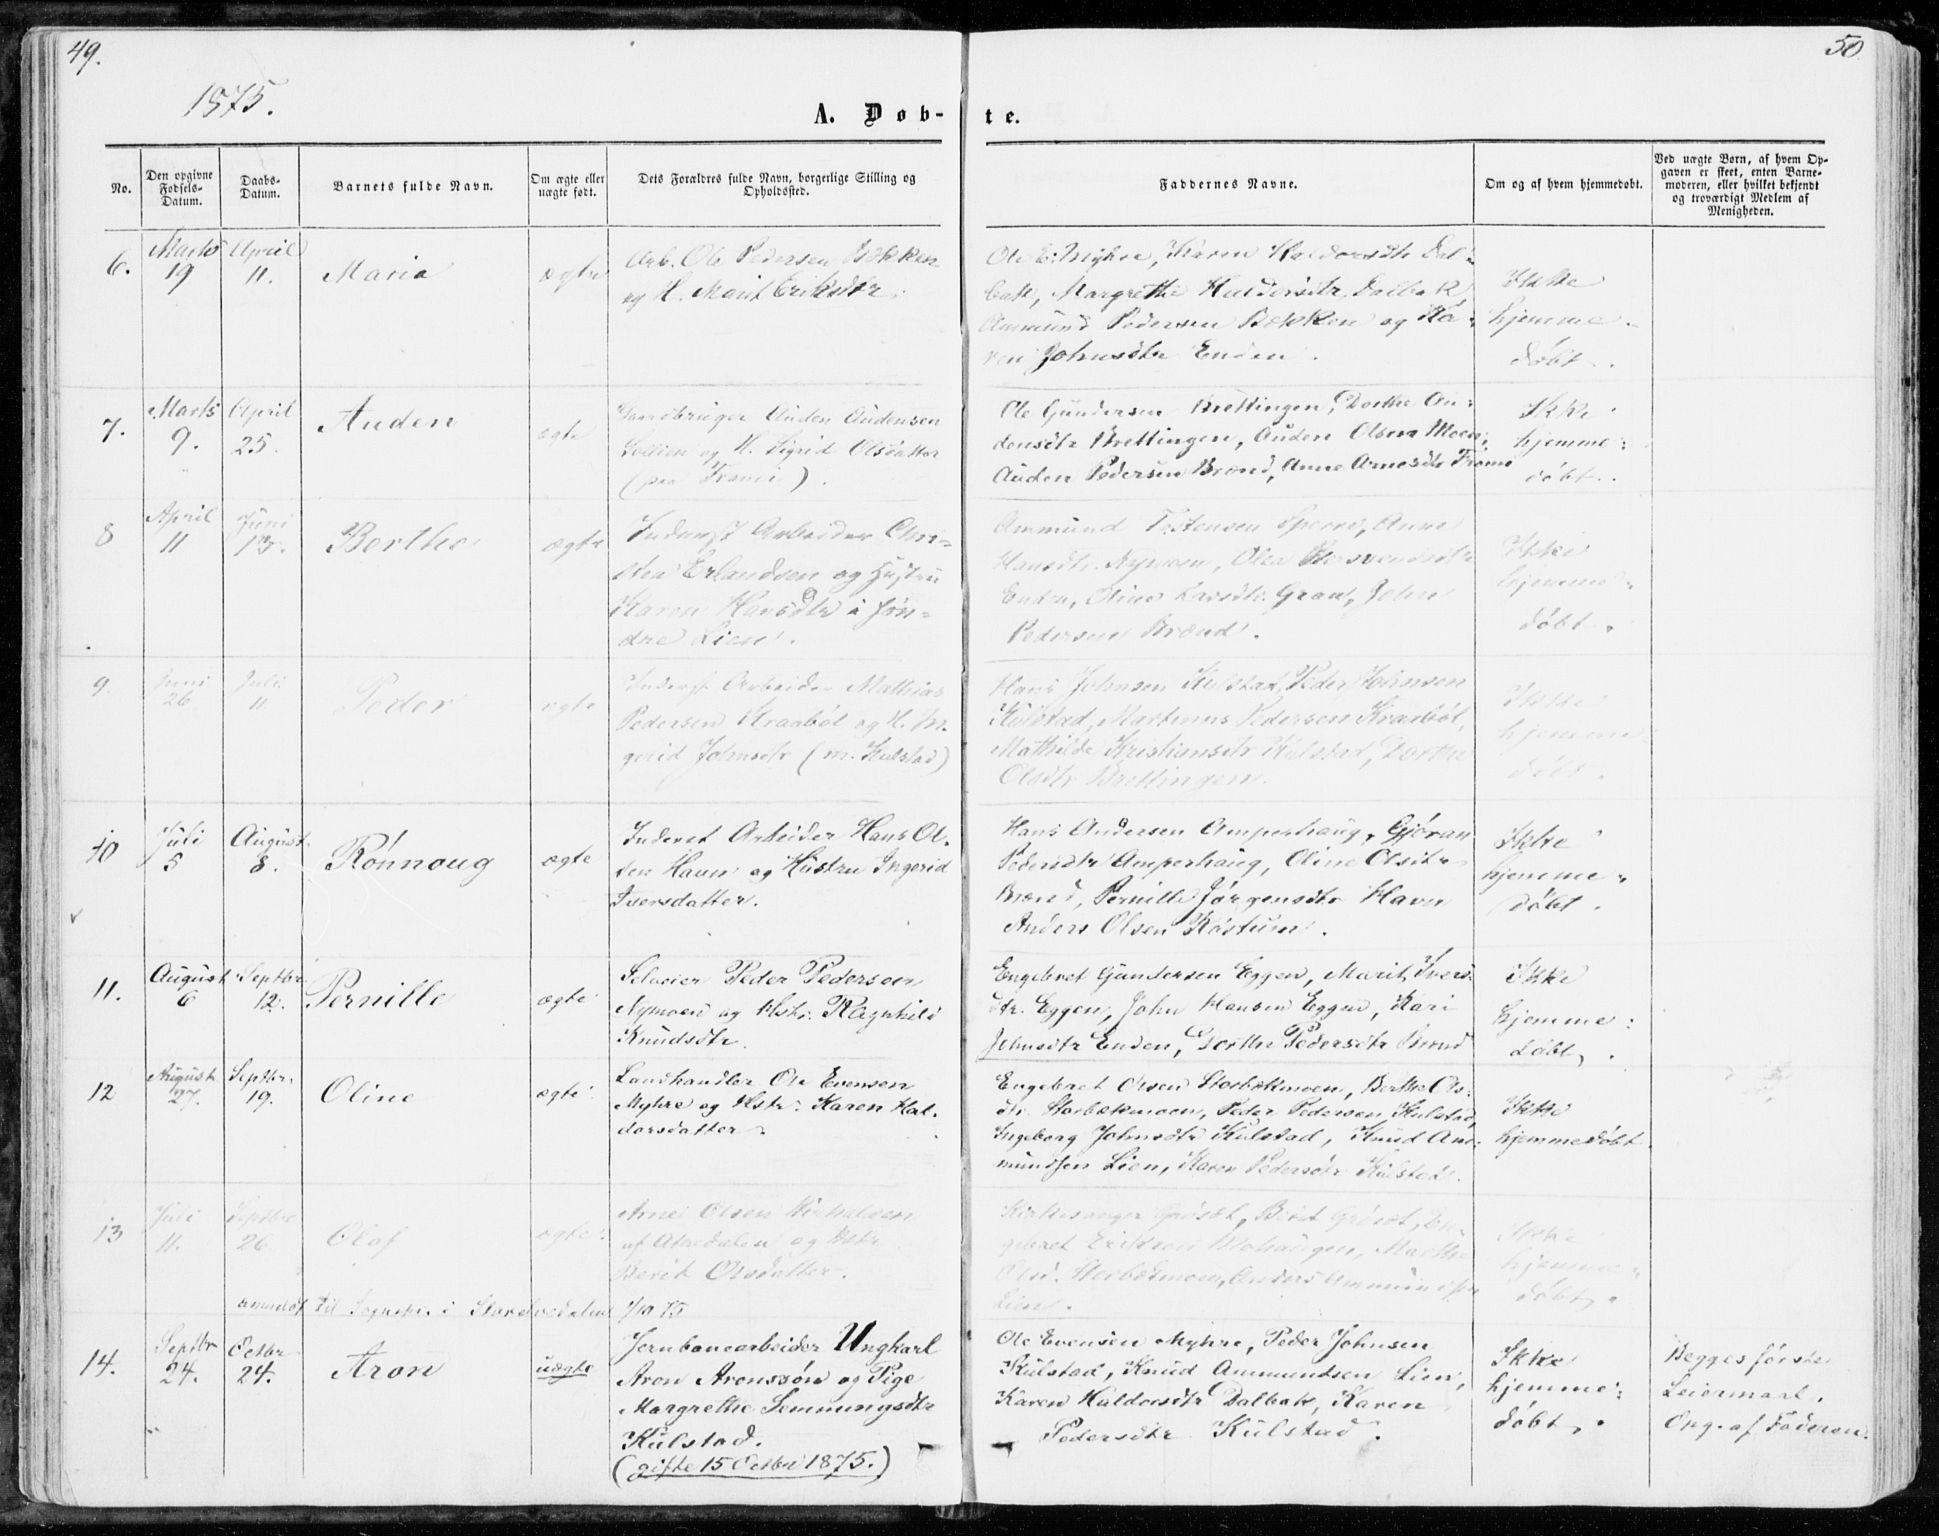 49.
50
1875.
A. Døb-
te.
No.
Den opgivne Fødsels-Datum.
Daabs-Datum.
Barnets fulde Navn.
Om ægte eller uægte født.
Dets Forældres fulde Navn, borgerlige Stilling og Opholdssted.
Faddernes Navne.
Om og af hvem hjemmedøbt.
Ved uægte Børn, af hvem Op-
gaven er skeet, enten Barne-
moderen, eller hvilket bekjendt
og troværdigt Medlem af
Menigheden.
6.
Marts
19
April
11.
Maria
ægte
Arb. Ole Pedersen Bækken
og H. Marit Eriksdtr.
Ole E. Myhre, Karen Haldorsdtr Dal-
bak, Margrethe Haldorsdtr Dalbak
Ammund Pedersen Bækken og Ka-
ren Johnsdtr Enden.
Ikke
hjemme-
døbt.
7.
Marts
9.
April
25.
Auden
ægte
Gaardbruger Auden Audensen
Sollien og H. Sigrid Olsdatter
(paa )
Ole Gundersen Brettingen, Dorthe Au-
densdtr Brettingen, Auden Olsen Moen,
Auden Pedersen Brænd, Anne Arnesdtr
Ikke
hjemme-
døbt.
8
April
11
Juni
13.
Berthe
ægte
Inderst Arbeider Chri-
sten Erlandsen og Hustru
Karen Hansdtr i Søn-
dre Lien.
Ammund Tostensen , Anne
Hansdtr. Nymoen, Olea
Enden, Oline Larsdtr. Gran, John
Pedersen Brænd.
Ikke
hjemme-
døbt.
9.
Juni
26
Juli
11
Peder
ægte
Inderst Arbeider Mathias
Pedersen Kraabøl og H. In-
gerid Johnsdtr (m. Kulstad)
Hans Johnsen Kulstad, Peder Johnsen
Kulstad, Martinus Pedersen Kraabøl,
Mathilde Kristiansdtr Kulstad, Dorthe
Olsdtr Brettingen.
Ikke
hjemme
døbt.
10
Juli
5
August
8.
Rønnoug
ægte
Inderst Arbeider Hans Ol-
sen Havn og Hustru Ingerid
Iversdatter.
Hans Andersen Amperhaug, Gjøran
Pedersdtr Amperhaug, Oline Olsdtr
Brænd, Pernille Jørgensdtr Havn
Anders Olsen Kaastum.
Ikke
hjemme-
døbt.
11.
August
6
Septbr.
12.
Pernille
ægte
Selveier Peder Pedersen
Nymoen og Hstr. Ragnhild
Knudsdtr.
Engebret Gundersen Eggen, Marit Ivers-
dtr. Eggen, John Hansen Eggen, Kari
Johnsdtr Enden, Dorthe Pedersdtr Brænd
Ikke
hjemme-
døbt.
12
August
27.
Septbr.
19.
Oline
ægte
Landhandler Ole Evensen
Myhre og Hstr. Karen Hal-
dorsdatter.
Engebret Olsen Storbækmoen, Berthe Ols-
dtr. Storbækmoen, Peder Pedersen Kulstad,
Ingeborg Johnsdtr Kulstad, Knud Am-
mundsen Lien, Karen Pedersdtr Kulstad.
Ikke
hjemmedøbt.
13
Juli
11.
Septbr
26
Olaf
ægte
Arne Olsen
af Atnedalen og Hstr
Berit Olsdatter.
Kirkesanger Grøsæt, Berit Grøsæt, En-
gebret Eriksen , Marthe
Olsd. Storbækmoen, Anders Ammundsen
Lien.
Ikke
hjemme-
døbt.
anmeldt til Sognepr. i Storelvedalen 1/10 75
14.
Septbr
24.
Octbr
24.
Aron
uægte
Jernbanearbeider Ungkarl
Aron Aronssøn og Pige
Margrethe Semmingsdtr
Kulstad.
(gifte 15 Octbr 1875.)
Ole Evensen Myhre, Peder Johnsen
Kulstad, Knud Ammundsen Lien,
Karen Haldorsdtr Dalbak, Karen
Pedersdtr Kulstad.
Ikke
hjemme-
døbt.
Begges første
Leiermaal.
Opg. af Faderen.